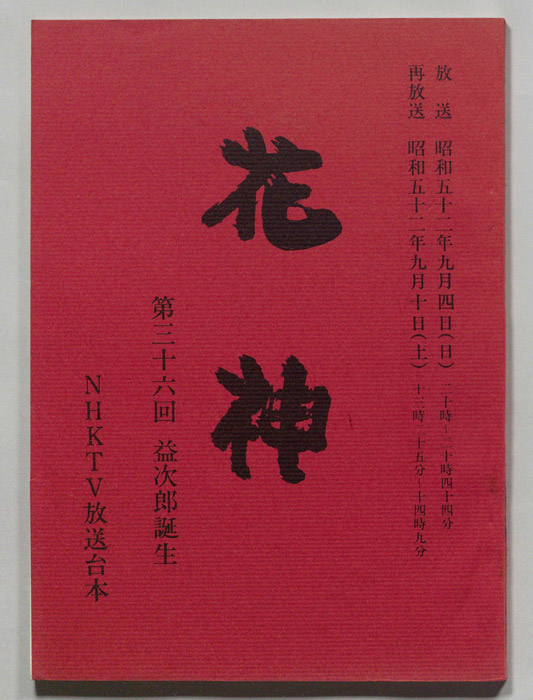 放送 昭和五十二年九月四日(日) 二十時~二十時四十四分
再放送 昭和五十二年九月十日(土) 十三時二十五分~十四時九分
花神
第三十六回 益次郎誕生
NHKTV放送台本